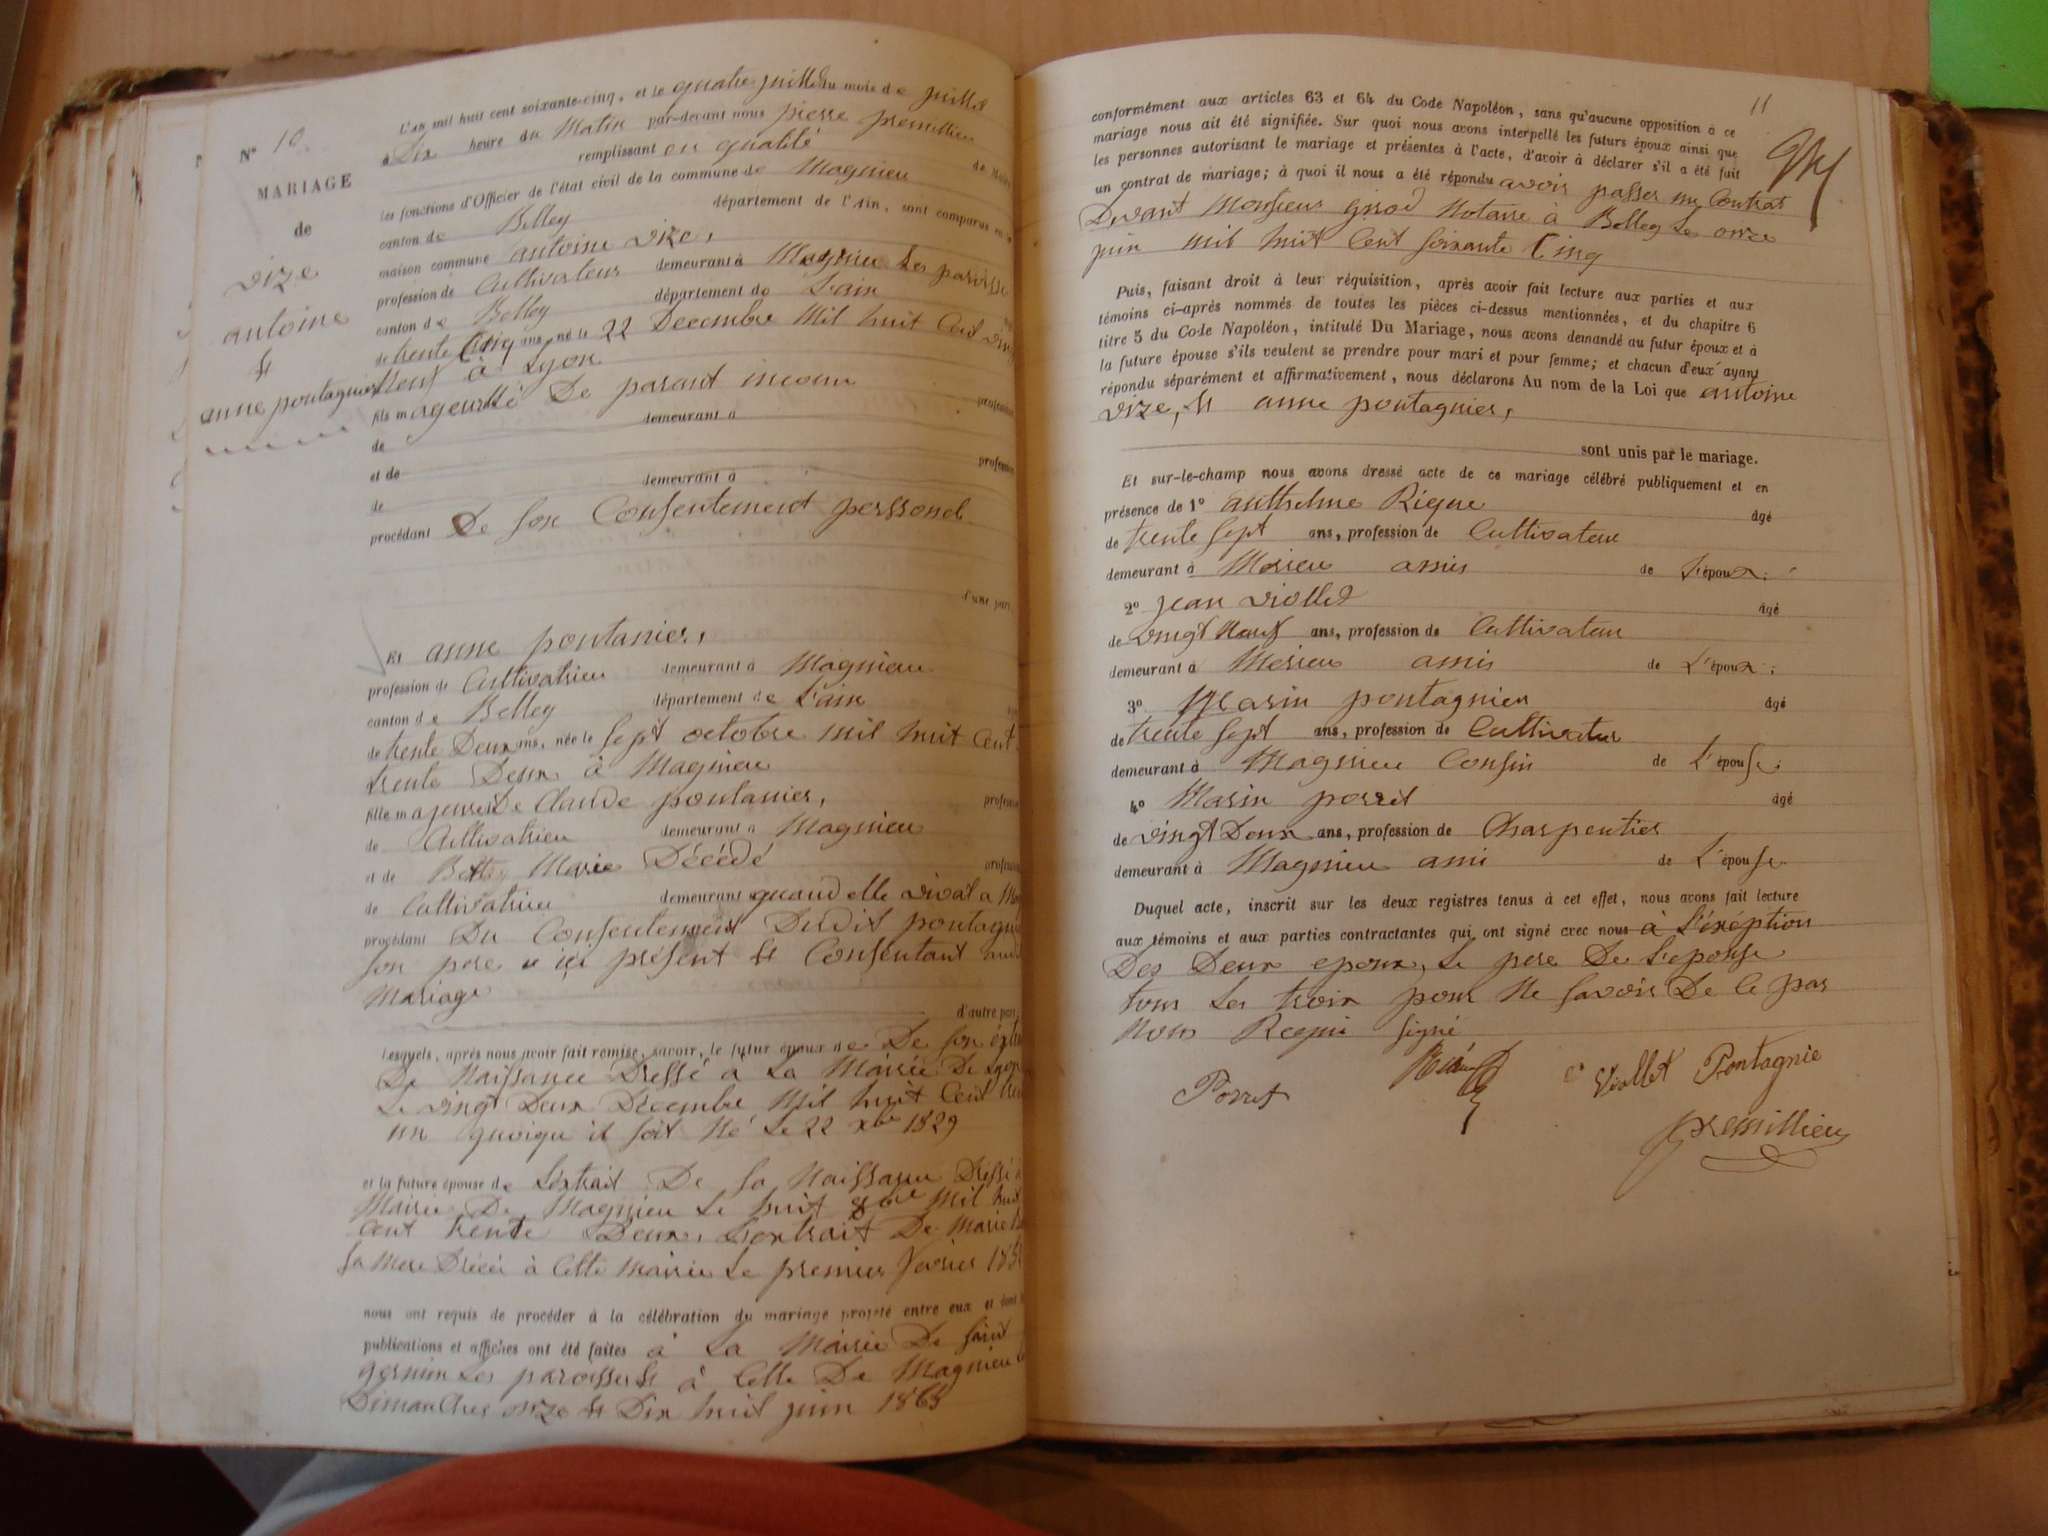 N° 10.
MARIAGE
de
vize
antoine
et
anne pontagnier
L'an mil huit cent soixante-cinq, et le quatre juillet du mois de juillet
à Dix heure du Matin par-devant nous pierre premillieu
remplissant en qualité de Maire
les fonctions d'Officier de l'état civil de la commune de Magnieu
canton de Belley département de l'Ain, sont comparus en la
maison commune antoine vize,
profession de Cultivateur demeurant à Magnieu Les paroisse
canton de Belley département de L'ain
de trente Cinq ans, né le 22 Decembre Mil huit Cent ving
Neuf à Lyon
fils majeur De parant inconu profession
de demeurant à
et de profession
de demeurant à
procédant De son Consentement perssonel
d'une part,
Et anne pontanier,
profession de Cultivatrieu demeurant à Magnieu
canton de Belley département de L'ain
de trente Deux ans, née le sept octobre mil huit Cent
trente Deux à Magnieu
fille majeure De Claude pontanier, profession
de Cultivatrieu demeurant à Magnieu
et de Marie Décédé profession
de Cultivatrieu demeurant quand elle vivat a
procédant Du Consentement Dudit pontagni
son pere ici présent et Consentant aud
Mariage
d'autre part,
Lesquels, après nous avoir fait remise, savoir, le futur époux de De son
De Naissance Dressé a La Mairie De Lyon
Le vingt Deux Décembre Mil huit Cent
un quoique il soit Né Le 22 xbre 1829
et la future épouse de L'extrait De sa Naissance Dressé à
Mairie De Magnieu Le huit 8bre Mil huit
cent trente Deux, L'extrait De Marie
sa Mere Décéé à Cette Mairie Le premier fevrier
nous ont requis de procéder à la célébration du mariage projeté entre eux et dont
publications et affiches ont été faites à La Mairie De saint
germin Les paroisses et à Celle De Magnieu
Dimanches onze et Dix huit juin 1865
11
conformément aux articles 63 et 64 du Code Napoléon, sans qu'aucune opposition à ce
mariage nous ait été signifiée. Sur quoi nous avons interpellé les futurs époux ainsi que
les personnes autorisant le mariage et présentes à l'acte, d'avoir à déclarer s'il a été fait
un contrat de mariage; à quoi il nous a été répondu avoir passer un Contrat
Devant Monsieur girod Notaire à Belley Le onze
juin mil huit Cent soixante Cinq
Puis, faisant droit à leur réquisition, après avoir fait lecture aux parties et aux
témoins ci-après nommés de toutes les pièces ci-dessus mentionnées, et du chapitre 6
titre 5 du Code Napoléon, intitulé Du Mariage, nous avons demandé au futur époux et à
la future épouse s'ils veulent se prendre pour mari et pour femme; et chacun d'eux ayant
répondu séparément et affirmativement, nous déclarons Au nom de la Loi que antoine
vize, et anne pontagnier,
sont unis par le mariage.
Et sur-le-champ nous avons dressé acte de ce mariage célébré publiquement et en
présence de 1° anthelme Rigue âgé
de trente sept ans, profession de Cultivateur
demeurant à Mérieu amis de L'époux.
2° jean viollet âgé
de vingt Neuf ans, profession de Cultivateur
demeurant à Mérieu amis de L'époux.
3° Marin pontagnier âgé
de trente sept ans, profession de Cultivateur
demeurant à Magnieu Cousin de L'épouse.
4° Marin porret âgé
de vingt Deux ans, profession de Charpentier
demeurant à Magnieu ami de L'épouse.
Duquel acte, inscrit sur les deux registres tenus à cet effet, nous avons fait lecture
aux témoins et aux parties contractantes qui ont signé avec nous à L'éxéption
Des Deux epoux, Le pere De L'epouse
tous Les troix pour Ne savoir De Ce par
Nous Requi signé
Porret
Viollet Pontagnie
premillieu